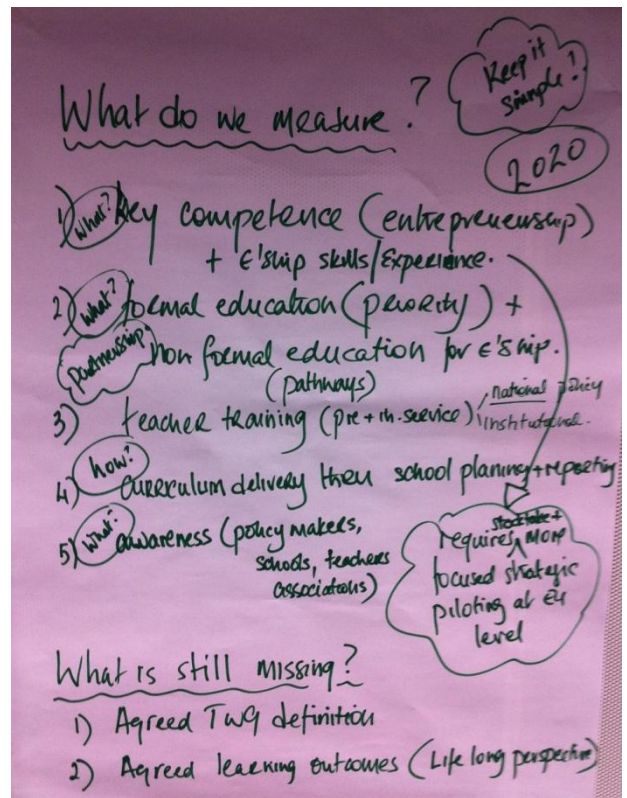 Keep it
simple!
What do we measure?
2020
1) What? Key competence (entrepreneurship)
+ €'ship skills/Experience.
2) What? formal education (priority) +
partnership. Non formal education for €'ship.
(pathways)
3) teacher training (pre + in-service) national policy
institutional.
how?
4) curriculum delivery then school planing + reporting
5) What? awareness (policy makers,
schools, teachers
associations)
stocktake +
requires more
focused strategic
piloting at EU
level
What is still missing?
1) Agreed TWG definition
2) Agreed learning outcomes (Life long perspective)